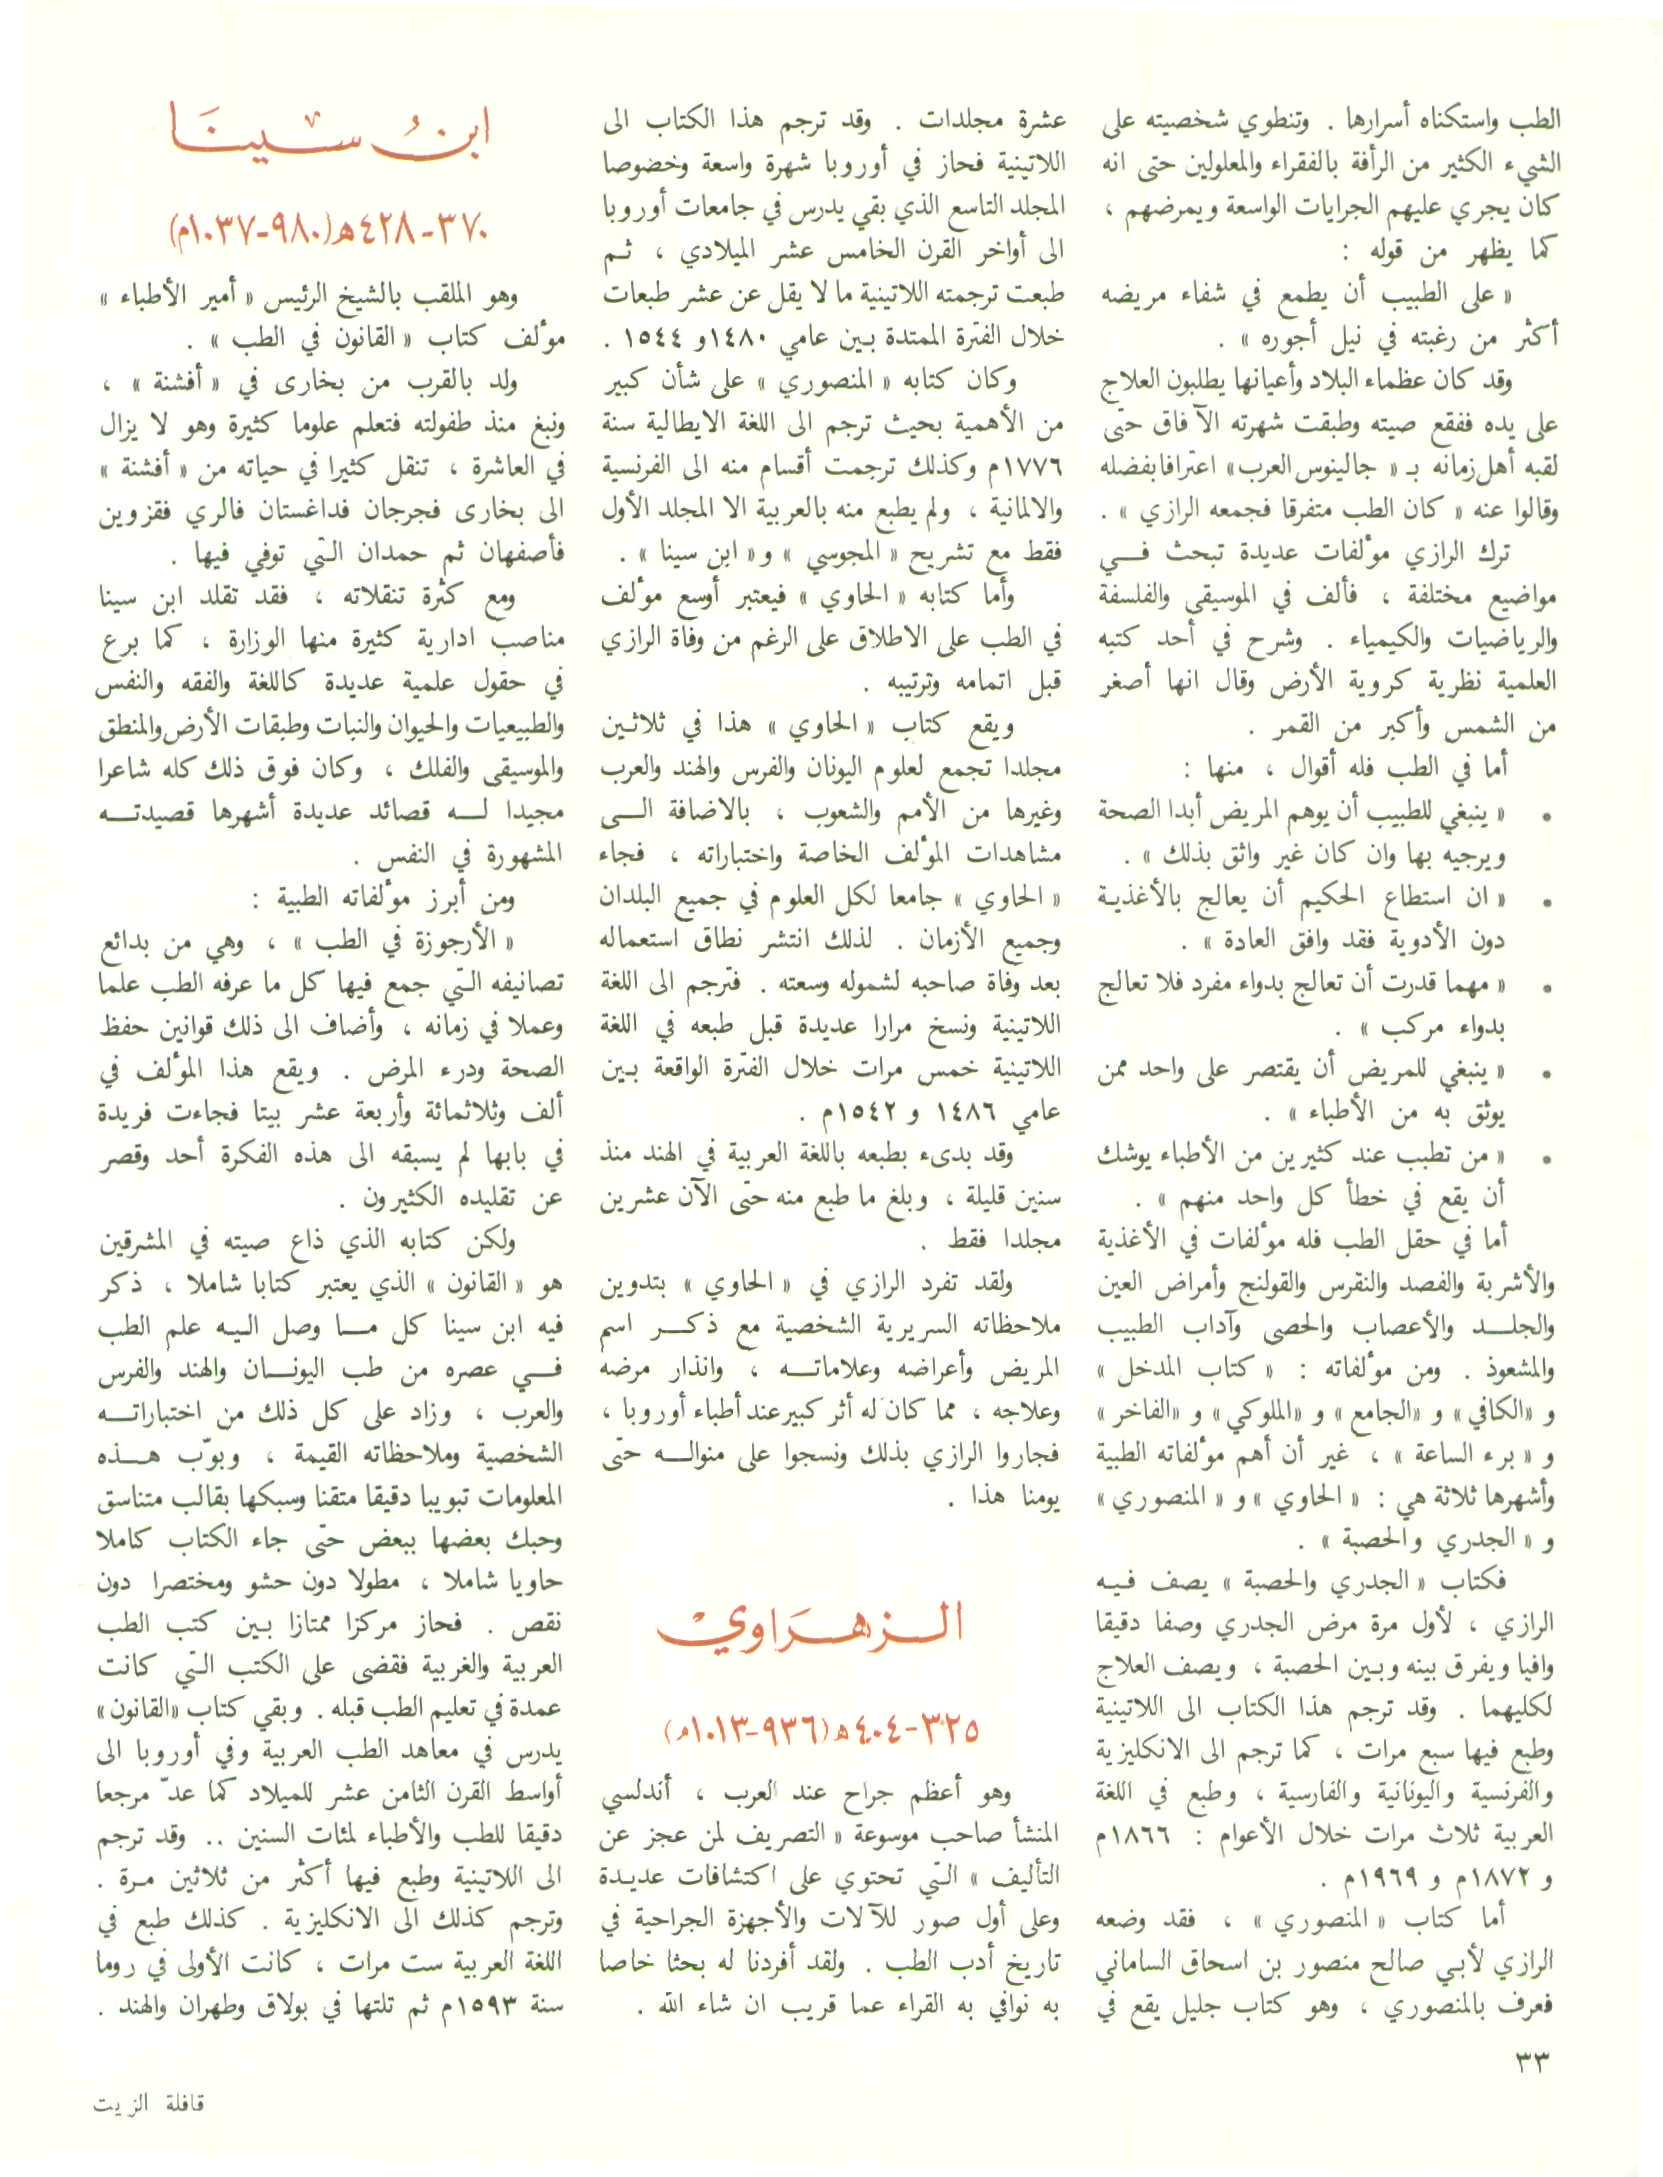 الطب واستكناه أسرارها . وتنطوي شخصيته على
الشيء الكثير من الرأفة بالفقراء والمعلولين حتى انه
كان يجري عليهم الجرايات الواسعة ويمرضهم ،
كما يظهر من قوله :
« على الطبيب أن يطمع في شفاء مريضه
أكثر من رغبته في نيل أجوره » .
وقد كان عظماء البلاد وأعيانها يطلبون العلاج
على يده ففقع صيته وطبقت شهرته الآفاق حتى
لقبه أهل زمانه بـ « جالينوس العرب » اعترافا بفضله
وقالوا عنه « كان الطب متفرقا فجمعه الرازي » .
ترك الرازي مؤلفات عديدة تبحث فــي
مواضيع مختلفة ، فألف في الموسيقى والفلسفة
والرياضيات والكيمياء . وشرح في أحد كتبه
العلمية نظرية كروية الأرض وقال انها أصغر
من الشمس وأكبر من القمر .
أما في الطب فله أقوال ، منها :
• « ينبغي للطبيب أن يوهم المريض أبدا الصحة
ويرجيه بها وان كان غير واثق بذلك » .
• « ان استطاع الحكيم أن يعالج بالأغذية
دون الأدوية فقد وافق العادة » .
• « مهما قدرت أن تعالج بدواء مفرد فلا تعالج
بدواء مركب » .
• « ينبغي للمريض أن يقتصر على واحد ممن
يوثق به من الأطباء » .
• « من تطبب عند كثيرين من الأطباء يوشك
أن يقع في خطأ كل واحد منهم » .
أما في حقل الطب فله مؤلفات في الأغذية
والأشربة والفصد والنقرس والقولنج وأمراض العين
والجلــد والأعصاب والحصى وآداب الطبيب
والمشعوذ . ومن مؤلفاته : « كتاب المدخل »
و «الكافي» و «الجامع» و «الملوكي» و «الفاخر»
و « برء الساعة » ، غير أن أهم مؤلفاته الطبية
وأشهرها ثلاثة هي : « الحاوي » و « المنصوري »
و « الجدري والحصبة » .
فكتاب « الجدري والحصبة » يصف فيه
الرازي ، لأول مرة مرض الجدري وصفا دقيقا
وافيا ويفرق بينه وبين الحصبة ، ويصف العلاج
لكليهما . وقد ترجم هذا الكتاب الى اللاتينية
وطبع فيها سبع مرات ، كما ترجم الى الانكليزية
والفرنسية واليونانية والفارسية ، وطبع في اللغة
العربية ثلاث مرات خلال الأعوام : ١٨٦٦م
و ١٨٧٢م و ١٩٦٩م .
أما كتاب « المنصوري » ، فقد وضعه
الرازي لأبي صالح منصور بن اسحاق الساماني
فعرف بالمنصوري ، وهو كتاب جليل يقع في
عشرة مجلدات . وقد ترجم هذا الكتاب الى
اللاتينية فحاز في أوروبا شهرة واسعة وخضوصا
المجلد التاسع الذي بقي يدرس في جامعات أوروبا
الى أواخر القرن الخامس عشر الميلادي ، ثـم
طبعت ترجمته اللاتينية ما لا يقل عن عشر طبعات
خلال الفترة الممتدة بين عامي ١٤٨٠و ١٥٤٤ .
وكان كتابه « المنصوري » على شأن كبير
من الأهمية بحيث ترجم الى اللغة الايطالية سنة
١٧٧٦م وكذلك ترجمت أقسام منه الى الفرنسية
والالمانية ، ولم يطبع منه بالعربية الا المجلد الأول
فقط مع تشريح « المجوسي » و « ابن سينا » .
وأما كتابه « الحاوي » فيعتبر أوسع مؤلف
في الطب على الاطلاق على الرغم من وفاة الرازي
قبل اتمامه وترتيبه .
ويقع كتاب « الحاوي » هذا في ثلاثين
مجلدا تجمع لعلوم اليونان والفرس والهند والعرب
وغيرها من الأمم والشعوب ، بالاضافة الــى
مشاهدات المؤلف الخاصة واختباراته ، فجاء
« الحاوي » جامعا لكل العلوم في جميع البلدان
وجميع الأزمان . لذلك انتشر نطاق استعماله
بعد وفاة صاحبه لشموله وسعته . فترجم الى اللغة
اللاتينية ونسخ مرارا عديدة قبل طبعه في اللغة
اللاتينية خمس مرات خلال الفترة الواقعة بين
عامي ١٤٨٦ و ١٥٤٢م .
وقد بدىء بطبعه باللغة العربية في الهند منذ
سنين قليلة ، وبلغ ما طبع منه حتى الآن عشرين
مجلدا فقط .
ولقد تفرد الرازي في « الحاوي » بتدوين
ملاحظاته السريرية الشخصية مع ذكــر اسم
المريض وأعراضه وعلاماتــه ، وانذار مرضه
وعلاجه ، مما كان له أثر كبير عند أطباء أوروبا ،
فجاروا الرازي بذلك ونسجوا على منوالــه حتى
يومنا هذا .
الـزهـَراوي
٣٢٥-٤٠٤ه‍(٩٣٦-١٠١٣م)
وهو أعظم جراح عند العرب ، أندلسي
المنشأ صاحب موسوعة « التصريف لمن عجز عن
التأليف » التي تحتوي على اكتشافات عديدة
وعلى أول صور للآلات والأجهزة الجراحية في
تاريخ أدب الطب . ولقد أفردنا له بحثا خاصا
به نوافي به القراء عما قريب ان شاء الله .
ابنُ سينَا
٣٧٠-٤٢٨ه‍(٩٨٠-١٠٣٧م)
وهو الملقب بالشيخ الرئيس « أمير الأطباء »
مؤلف كتاب « القانون في الطب » .
ولد بالقرب من بخارى في « أفشنة » ،
ونبغ منذ طفولته فتعلم علوما كثيرة وهو لا يزال
في العاشرة ، تنقل كثيرا في حياته من « أفشنة »
الى بخارى فجرجان فداغستان فالري فقزوين
فأصفهان ثم حمدان التي توفي فيها .
ومع كثرة تنقلاته ، فقد تقلد ابن سينا
مناصب ادارية كثيرة منها الوزارة ، كما برع
في حقول علمية عديدة كاللغة والفقه والنفس
والطبيعيات والحيوان والنبات وطبقات الأرض والمنطق
والموسيقى والفلك ، وكان فوق ذلك كله شاعرا
مجيدا لــه قصائد عديدة أشهرها قصيدتــه
المشهورة في النفس .
ومن أبرز مؤلفاته الطبية :
« الأرجوزة في الطب » ، وهي من بدائع
تصانيفه التي جمع فيها كل ما عرفه الطب علما
وعملا في زمانه ، وأضاف الى ذلك قوانين حفظ
الصحة ودرء المرض . ويقع هذا المؤلف في
ألف وثلاثمائة وأربعة عشر بيتا فجاءت فريدة
في بابها لم يسبقه الى هذه الفكرة أحد وقصر
عن تقليده الكثيرون .
ولكن كتابه الذي ذاع صيته في المشرقين
هو « القانون » الذي يعتبر كتابا شاملا ، ذكر
فيه ابن سينا كل مــا وصل اليه علم الطب
فــي عصره من طب اليونــان والهند والفرس
والعرب ، وزاد على كل ذلك من اختباراتــه
الشخصية وملاحظاته القيمة ، وبوّب هــذه
المعلومات تبويبا دقيقا متقنا وسبكها بقالب متناسق
وحبك بعضها ببعض حتى جاء الكتاب كاملا
حاويا شاملا ، مطولا دون حشو ومختصرا دون
نقص . فحاز مركزا ممتازا بين كتب الطب
العربية والغربية فقضى على الكتب التي كانت
عمدة في تعليم الطب قبله . وبقي كتاب «القانون»
يدرس في معاهد الطب العربية وفي أوروبا الى
أواسط القرن الثامن عشر للميلاد كما عدّ مرجعا
دقيقا للطب والأطباء لمئات السنين .. وقد ترجم
الى اللاتينية وطبع فيها أكثر من ثلاثين مرة .
وترجم كذلك الى الانكليزية . كذلك طبع في
اللغة العربية ست مرات ، كانت الأولى في روما
سنة ١٥٩٣م ثم تلتها في بولاق وطهران والهند .
٣٣
قافلة الزيت